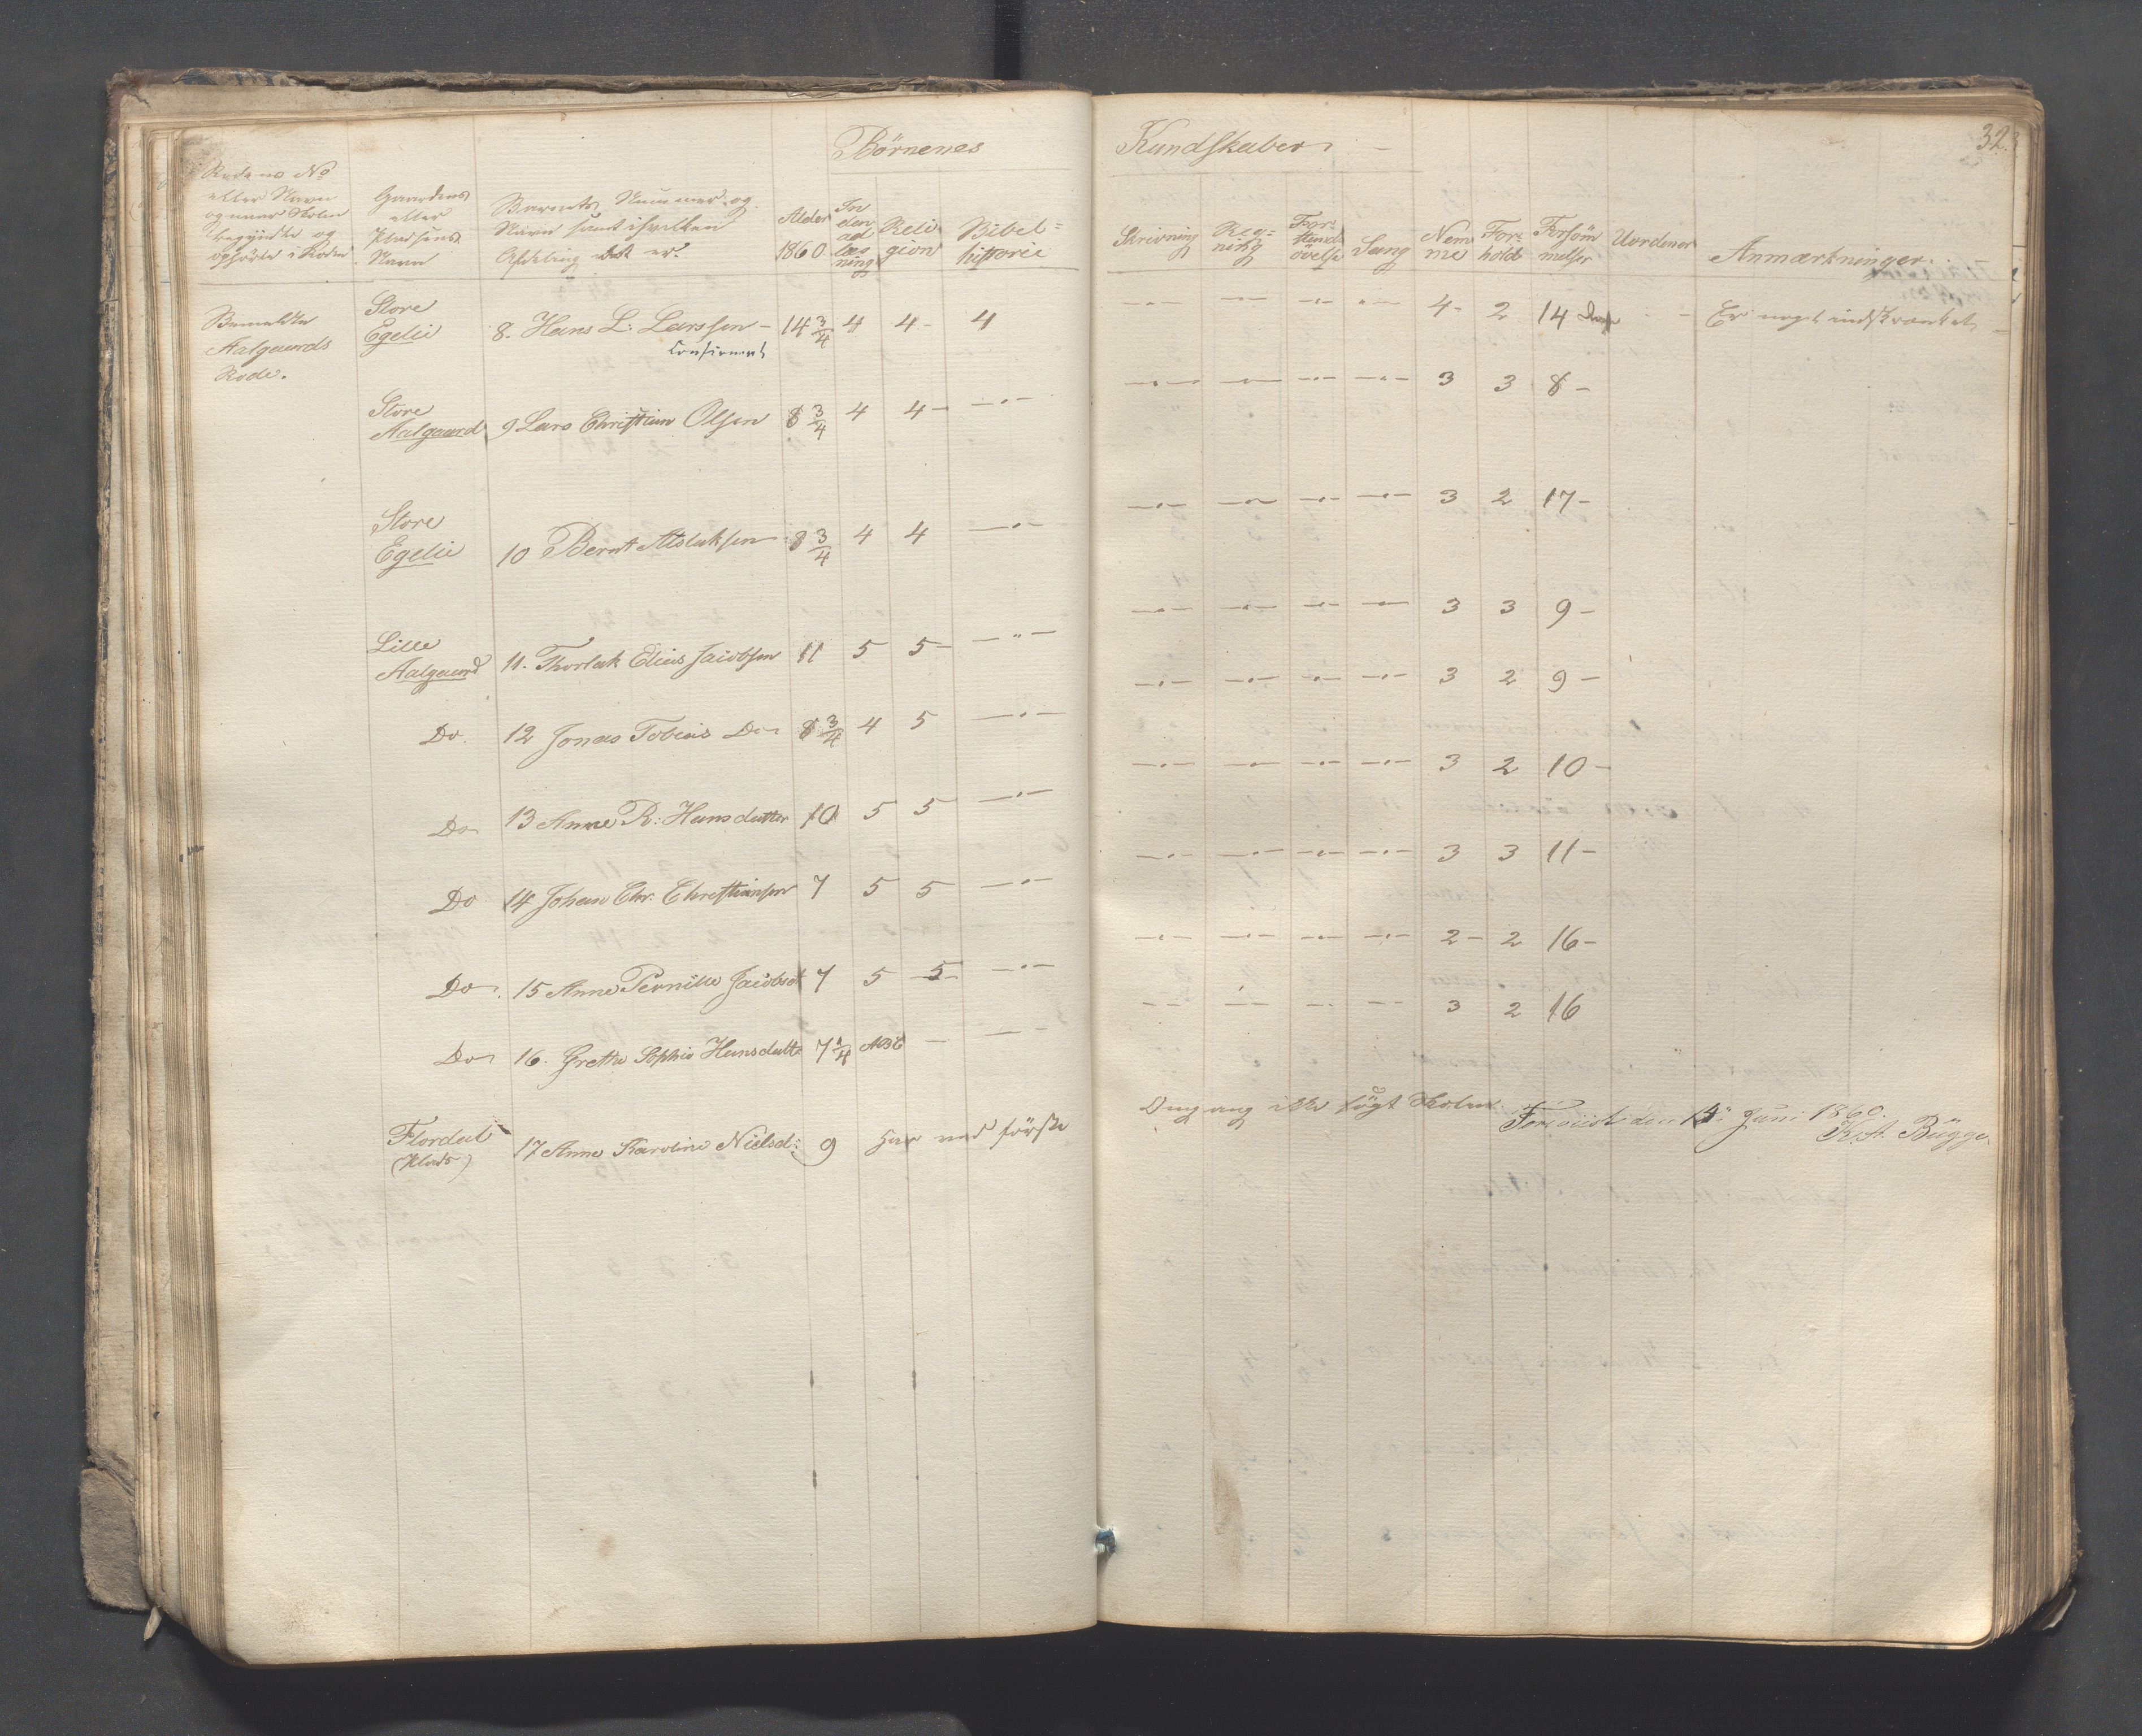 Børnenes Kundskaber. 32.
Rodens No eller Navn og naar Skolen begyndte og ophørte i Roden
Gaardens eller Pladsens Navn
Barnets Nummer og Navn samt i hvilken Afdeling det er.
Alder 1860
Indenadlæsning
Religion
Bibelhistorie
Skrivning
Regning
Forstandsøvelse
Sang
Nemme
Forhold
Forsømmelser
Uordener
Anmærkninger.
Bemeldte Aalgaards Rode.
Store Egelie 8. Hans L: Larssen - 14 3/4 4 4- 4 4- 2 14 Dage Er noget indskrænket
Confirmert
Store Aalgaard 9 Lars Christian Olsen 8 3/4 4 4- 3 3 8-
Store Egelie 10 Bernt Atslaksen 8 3/4 4 4 3 2 17-
Lille Aalgaard 11. Thorlak Elias Jacobsen 11 5 5- 3 3 9-
Do. 12 Jonas Tobias Do 8 3/4 4 5 3 2 9-
Do 13 Anne R: Hansdatter 10 5 5 3 2 10-
Do 14 Johan Chr. Christiansen 7 5 5 3 3 11-
Do 15 Anne Pernille Jacobsd 7 5 5 2- 2 16-
Do 16. Grethe Sophie Hansdatte 7 1/4 ABC 3 2 16
Flordal (Plads) 17 Anne Karoline Nielsd: 9 Har ved første Omgang ikke søgt Skolen.
den 15 Juni 1860.
K: A. Bügge.